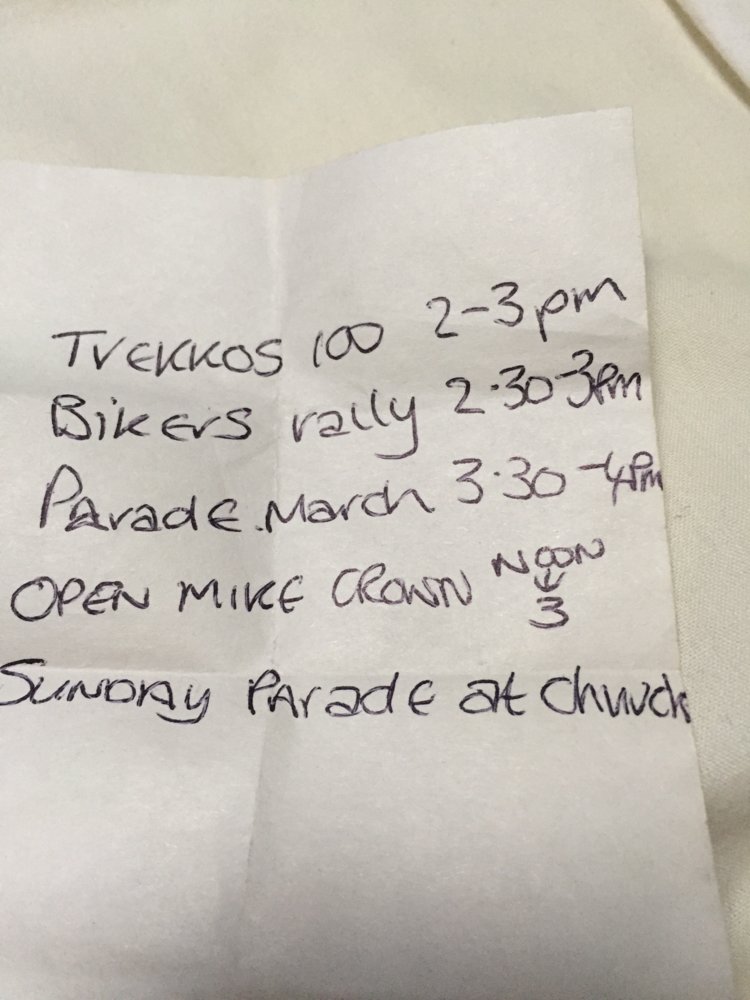 TrEKKOS 100 2-3pm
BikErs rally 2.30-3Pm
PArade March 3.30-4Pm
OPEN MIKE CROWN NOON
↓
3
SUNDAy PArade at Church